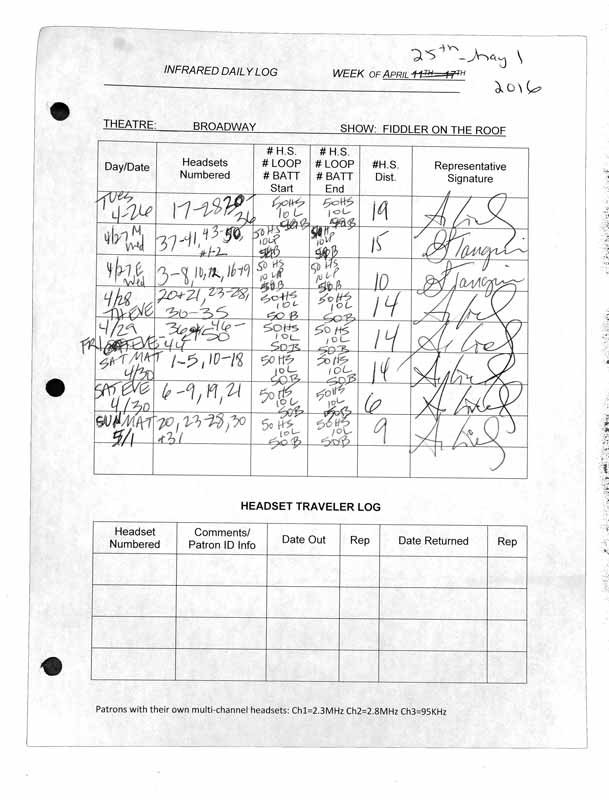 25th - May 1
INFRARED DAILY LOG WEEK OF APRIL 11TH – 17TH
2016
THEATRE: BROADWAY SHOW: FIDDLER ON THE ROOF
Day/Date Headsets Numbered # H.S. # LOOP # BATT Start # H.S. # LOOP # BATT End #H.S. Dist. Representative Signature
TUES 4-26 17-28 20-36 50HS 10L 50B 50HS 10L 50B 19
4/27 M Wed 37-41, 43-50, +1-2 50HS 10LP 50B 50HS 10LP 50B 15
4/27 E Wed 3-8, 10, 12, 16+19 50HS 10LP 50B 50HS 10LP 50B 10
4/28 TH EVE 20+21, 23-28, 30-35 50HS 10L 50B 50HS 10L 50B 14
4/29 FRI EVE 44 50HS 10L 50B 50HS 10L 50B 14
SAT MAT 4/30 1-5, 10-18 50HS 10L 50B 50HS 10L 50B 14
SAT EVE 4/30 6-9, 19, 21 50HS 10L 50B 50HS 10L 50B 6
SUN MAT 5/1 20, 23-28, 30 +31 50HS 10L 50B 50HS 10L 50B 9
HEADSET TRAVELER LOG
Headset Numbered Comments/ Patron ID Info Date Out Rep Date Returned Rep
Patrons with their own multi-channel headsets: Ch1=2.3MHz Ch2=2.8MHz Ch3=95KHz